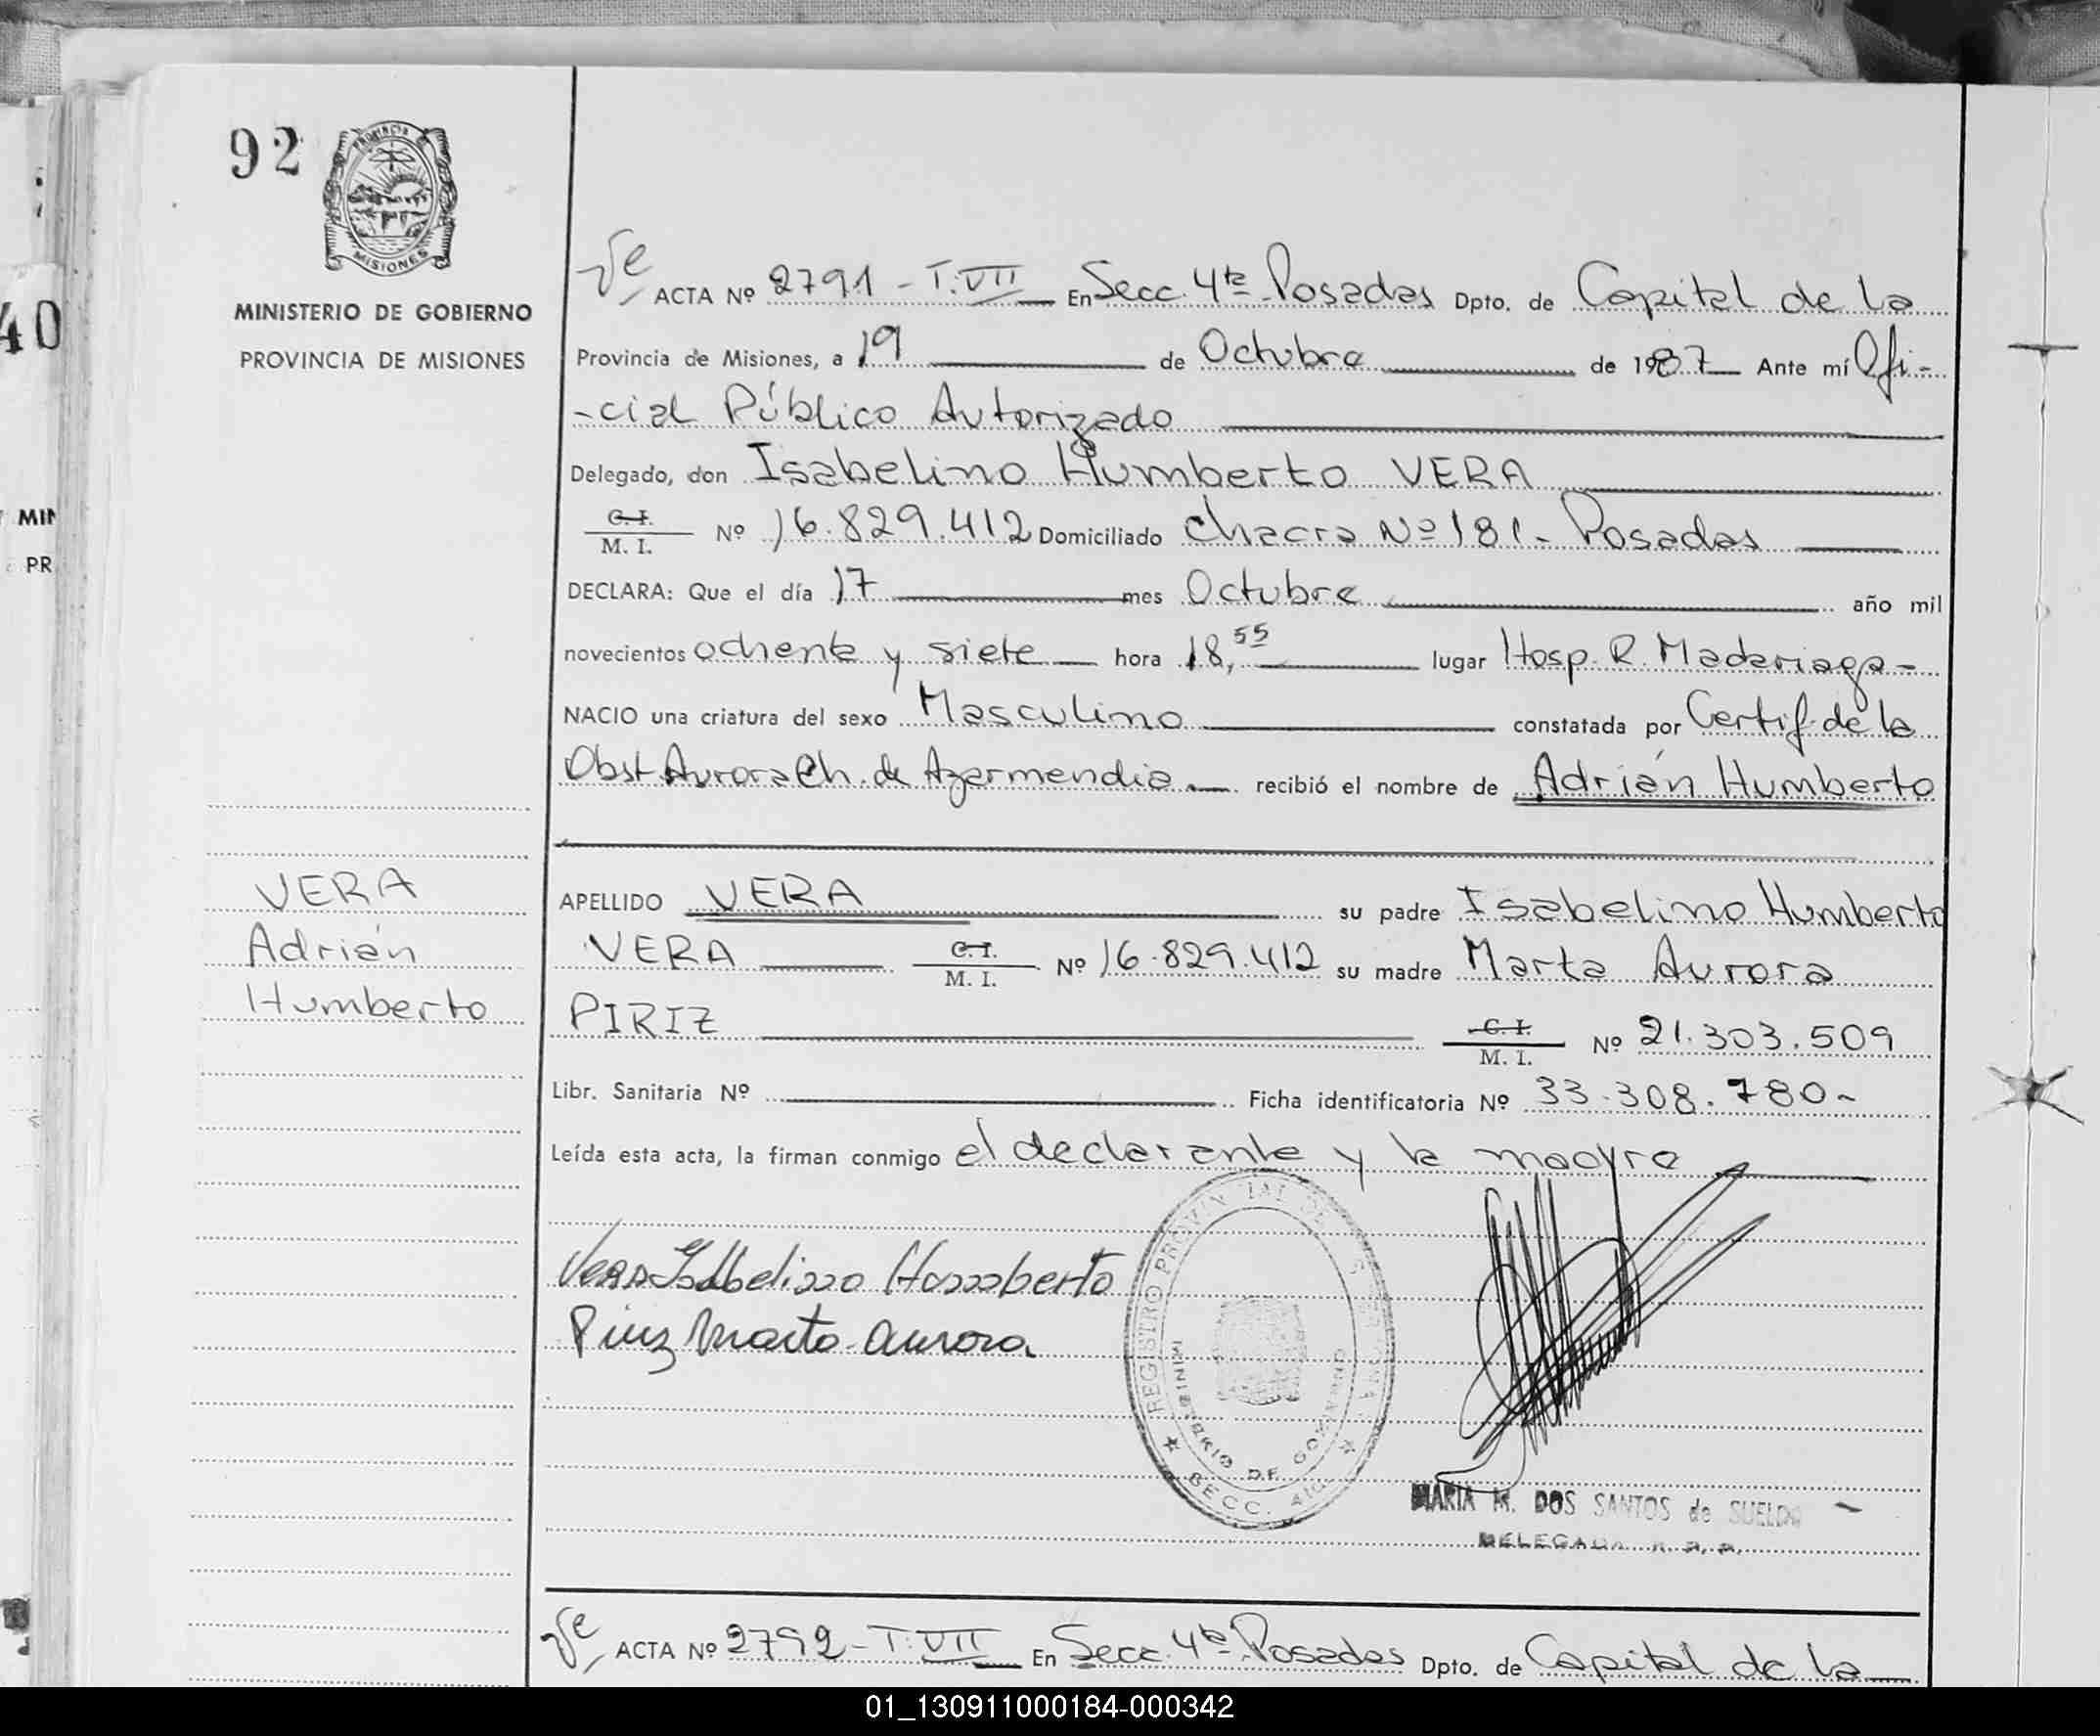 92
PROVINCIA
MISIONES
MINISTERIO DE GOBIERNO
PROVINCIA DE MISIONES
40
MIN
PR
ACTA Nº 2791 - T. VII En Secc. 4ta Posadas Dpto. de Capital de la
Provincia de Misiones, a 19 de Octubre de 1987 Ante mí Ofi-
-cial Público Autorizado
Delegado, don Isabelino Humberto VERA
C. I.
M. I. Nº 16.829.412 Domiciliado Chacra Nº 181 - Posadas
DECLARA: Que el día 17 mes Octubre año mil
novecientos ochenta y siete hora 18,55 lugar Hosp. R. Madariaga -
NACIO una criatura del sexo Masculino constatada por Certif. de la
Obst. Aurora Ch. de Azarmendia recibió el nombre de Adrián Humberto
VERA
Adrián
Humberto
APELLIDO VERA su padre Isabelino Humberto
VERA C. I. M. I. Nº 16.829.412 su madre Marta Aurora
PIRIZ C. I. M. I. Nº 21.303.509
Libr. Sanitaria Nº Ficha identificatoria Nº 33.308.780 -
Leída esta acta, la firman conmigo el declarante y la madre
Vera Isabelino Humberto
Piriz Marta Aurora
REGISTRO PROVINCIAL DE
MINISTERIO DE GOBIERNO
SECC. 4ta
MARIA M. DOS SANTOS de SUELDO
DELEGADA
ACTA Nº 2792 - T. VII En Secc. 4ta Posadas Dpto. de Capital de la
01_130911000184-000342